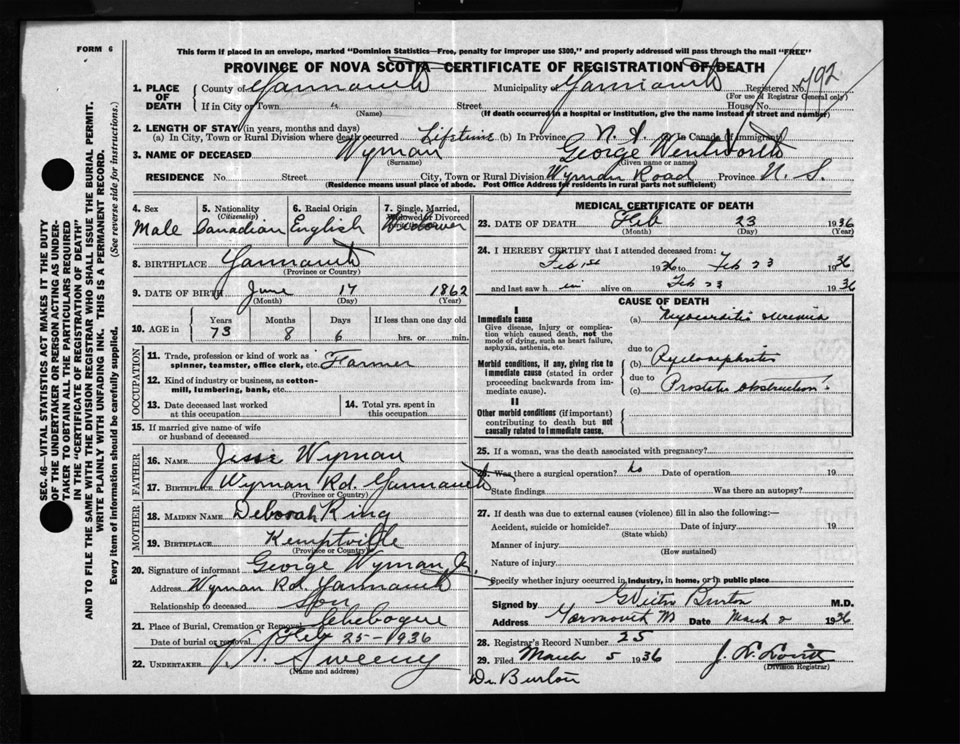 FORM 6
This form if placed in an envelope, marked "Dominion Statistics—Free, penalty for improper use $300," and properly addressed will pass through the mail "FREE"
PROVINCE OF NOVA SCOTIA—CERTIFICATE OF REGISTRATION OF DEATH
1. PLACE OF DEATH County of Yarmouth Municipality of Yarmouth Registered No. 792
(For use of Registrar General only)
If in City or Town " Street House No.
(Name) (If death occurred in a hospital or institution, give the name instead of street and number)
2. LENGTH OF STAY (in years, months and days)
(a) In City, Town or Rural Division where death occurred Lifetime (b) In Province N. S. (c) to Canada (if immigrant)
3. NAME OF DECEASED Wyman George Wentworth
(Surname) (Given name or names)
RESIDENCE No. Street City, Town or Rural Division Wyman Road Province N. S.
(Residence means usual place of abode. Post Office Address for residents in rural parts not sufficient)
4. Sex Male
5. Nationality (Citizenship) Canadian
6. Racial Origin English
7. Single, Married, Widowed or Divorced Widower
8. BIRTHPLACE Yarmouth
(Province or Country)
9. DATE OF BIRTH June 17 1862
(Month) (Day) (Year)
10. AGE in Years 73 Months 8 Days 6 If less than one day old hrs. or min.
OCCUPATION
11. Trade, profession or kind of work as spinner, teamster, office clerk, etc. Farmer
12. Kind of industry or business, as cotton-mill, lumbering, bank, etc.
13. Date deceased last worked at this occupation
14. Total yrs. spent in this occupation
15. If married give name of wife or husband of deceased
FATHER
16. NAME Jesse Wyman
17. BIRTHPLACE Wyman Rd. Yarmouth
(Province or Country)
MOTHER
18. MAIDEN NAME Deborah King
19. BIRTHPLACE Kemptville
(Province or Country)
20. Signature of informant George Wyman Jr.
Address Wyman Rd. Yarmouth
Relationship to deceased Son
21. Place of Burial, Cremation or Removal Chebogue
Date of burial or removal Feb 25-1936
22. UNDERTAKER Sweeny
(Name and address)
MEDICAL CERTIFICATE OF DEATH
23. DATE OF DEATH Feb 23 1936
(Month) (Day) (Year)
24. I HEREBY CERTIFY that I attended deceased from:
Feb 1st 1936 to Feb 23 1936
and last saw him alive on Feb 23 1936
CAUSE OF DEATH
I
Immediate cause
Give disease, injury or complication which caused death, not the mode of dying, such as heart failure, asphyxia, asthenia, etc.
(a) Myocarditis uremia
due to
Morbid conditions, if any, giving rise to immediate cause (stated in order proceeding backwards from immediate cause).
(b) Pyelonephritis
due to
(c) Prostatic obstruction
II
Other morbid conditions (if important) contributing to death but not causally related to immediate cause.
25. If a woman, was the death associated with pregnancy?
26. Was there a surgical operation? no Date of operation 19
State findings Was there an autopsy?
27. If death was due to external causes (violence) fill in also the following:—
Accident, suicide or homicide? Date of injury 19
(State which)
Manner of injury
(How sustained)
Nature of injury
Specify whether injury occurred in industry, in home, or in public place
Signed by Burton M.D.
Address Yarmouth Date March 2 1936
28. Registrar's Record Number 25
29. Filed March 5 1936
(Division Registrar)
Dr Burton
SEC. 46—VITAL STATISTICS ACT MAKES IT THE DUTY OF THE UNDERTAKER OR PERSON ACTING AS UNDERTAKER TO OBTAIN ALL THE PARTICULARS REQUIRED IN THE "CERTIFICATE OF REGISTRATION OF DEATH" AND TO FILE THE SAME WITH THE DIVISION REGISTRAR WHO SHALL ISSUE THE BURIAL PERMIT.
WRITE PLAINLY WITH UNFADING INK. THIS IS A PERMANENT RECORD.
Every item of information should be carefully supplied. (See reverse side for instructions.)